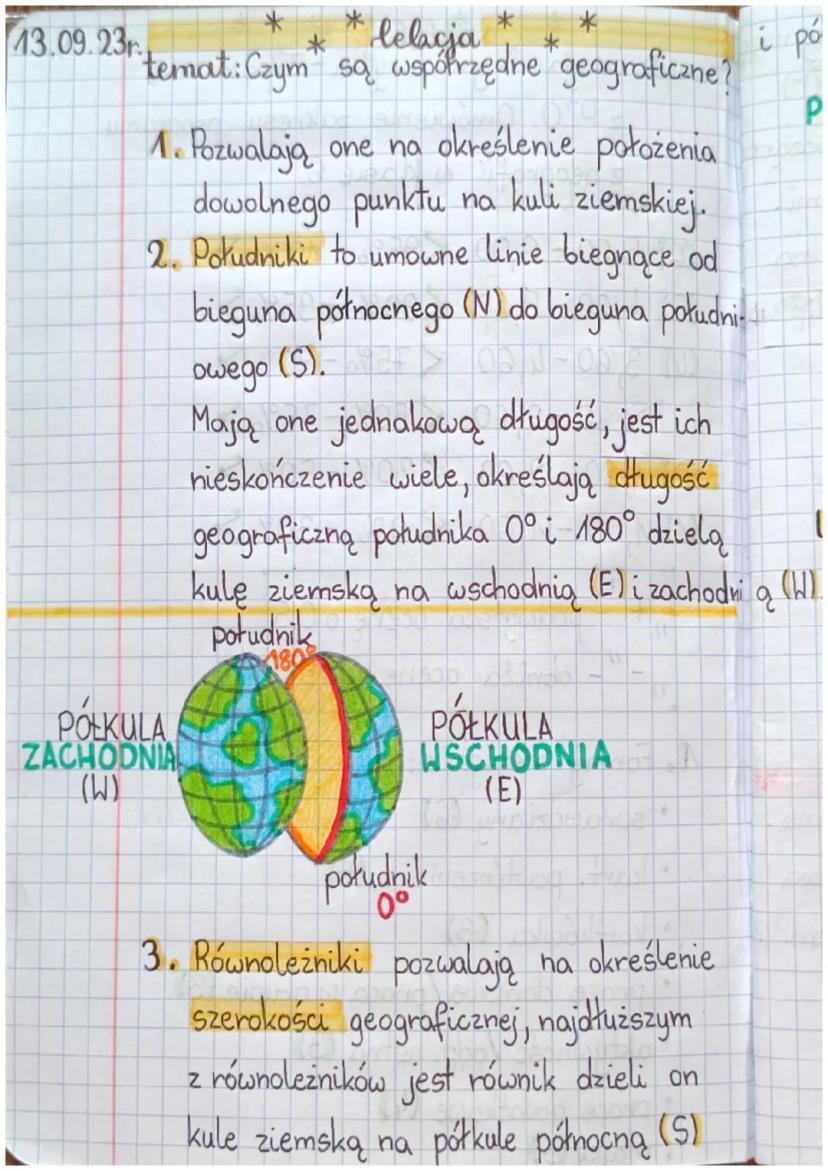 13.09.23r. lelacja
temat: Czym są współrzędne geograficzne?
1. Pozwalają one na określenie położenia
dowolnego punktu na kuli ziemskiej.
2. Południki to umowne linie biegnące od
bieguna północnego (N) do bieguna południ-
owego (S).
Mają one jednakową długość, jest ich
nieskończenie wiele, określają długość
geograficzną południka 0° i 180° dzielą
kulę ziemską na wschodnią (E) i zachodnią (W)
południk
180°
PÓŁKULA
ZACHODNIA
(W)
PÓŁKULA
WSCHODNIA
(E)
południk
0°
3. Równoleżniki pozwalają na określenie
szerokości geograficznej, najdłuższym
z równoleżników jest równik dzieli on
kule ziemską na półkule północną (S)
i pó